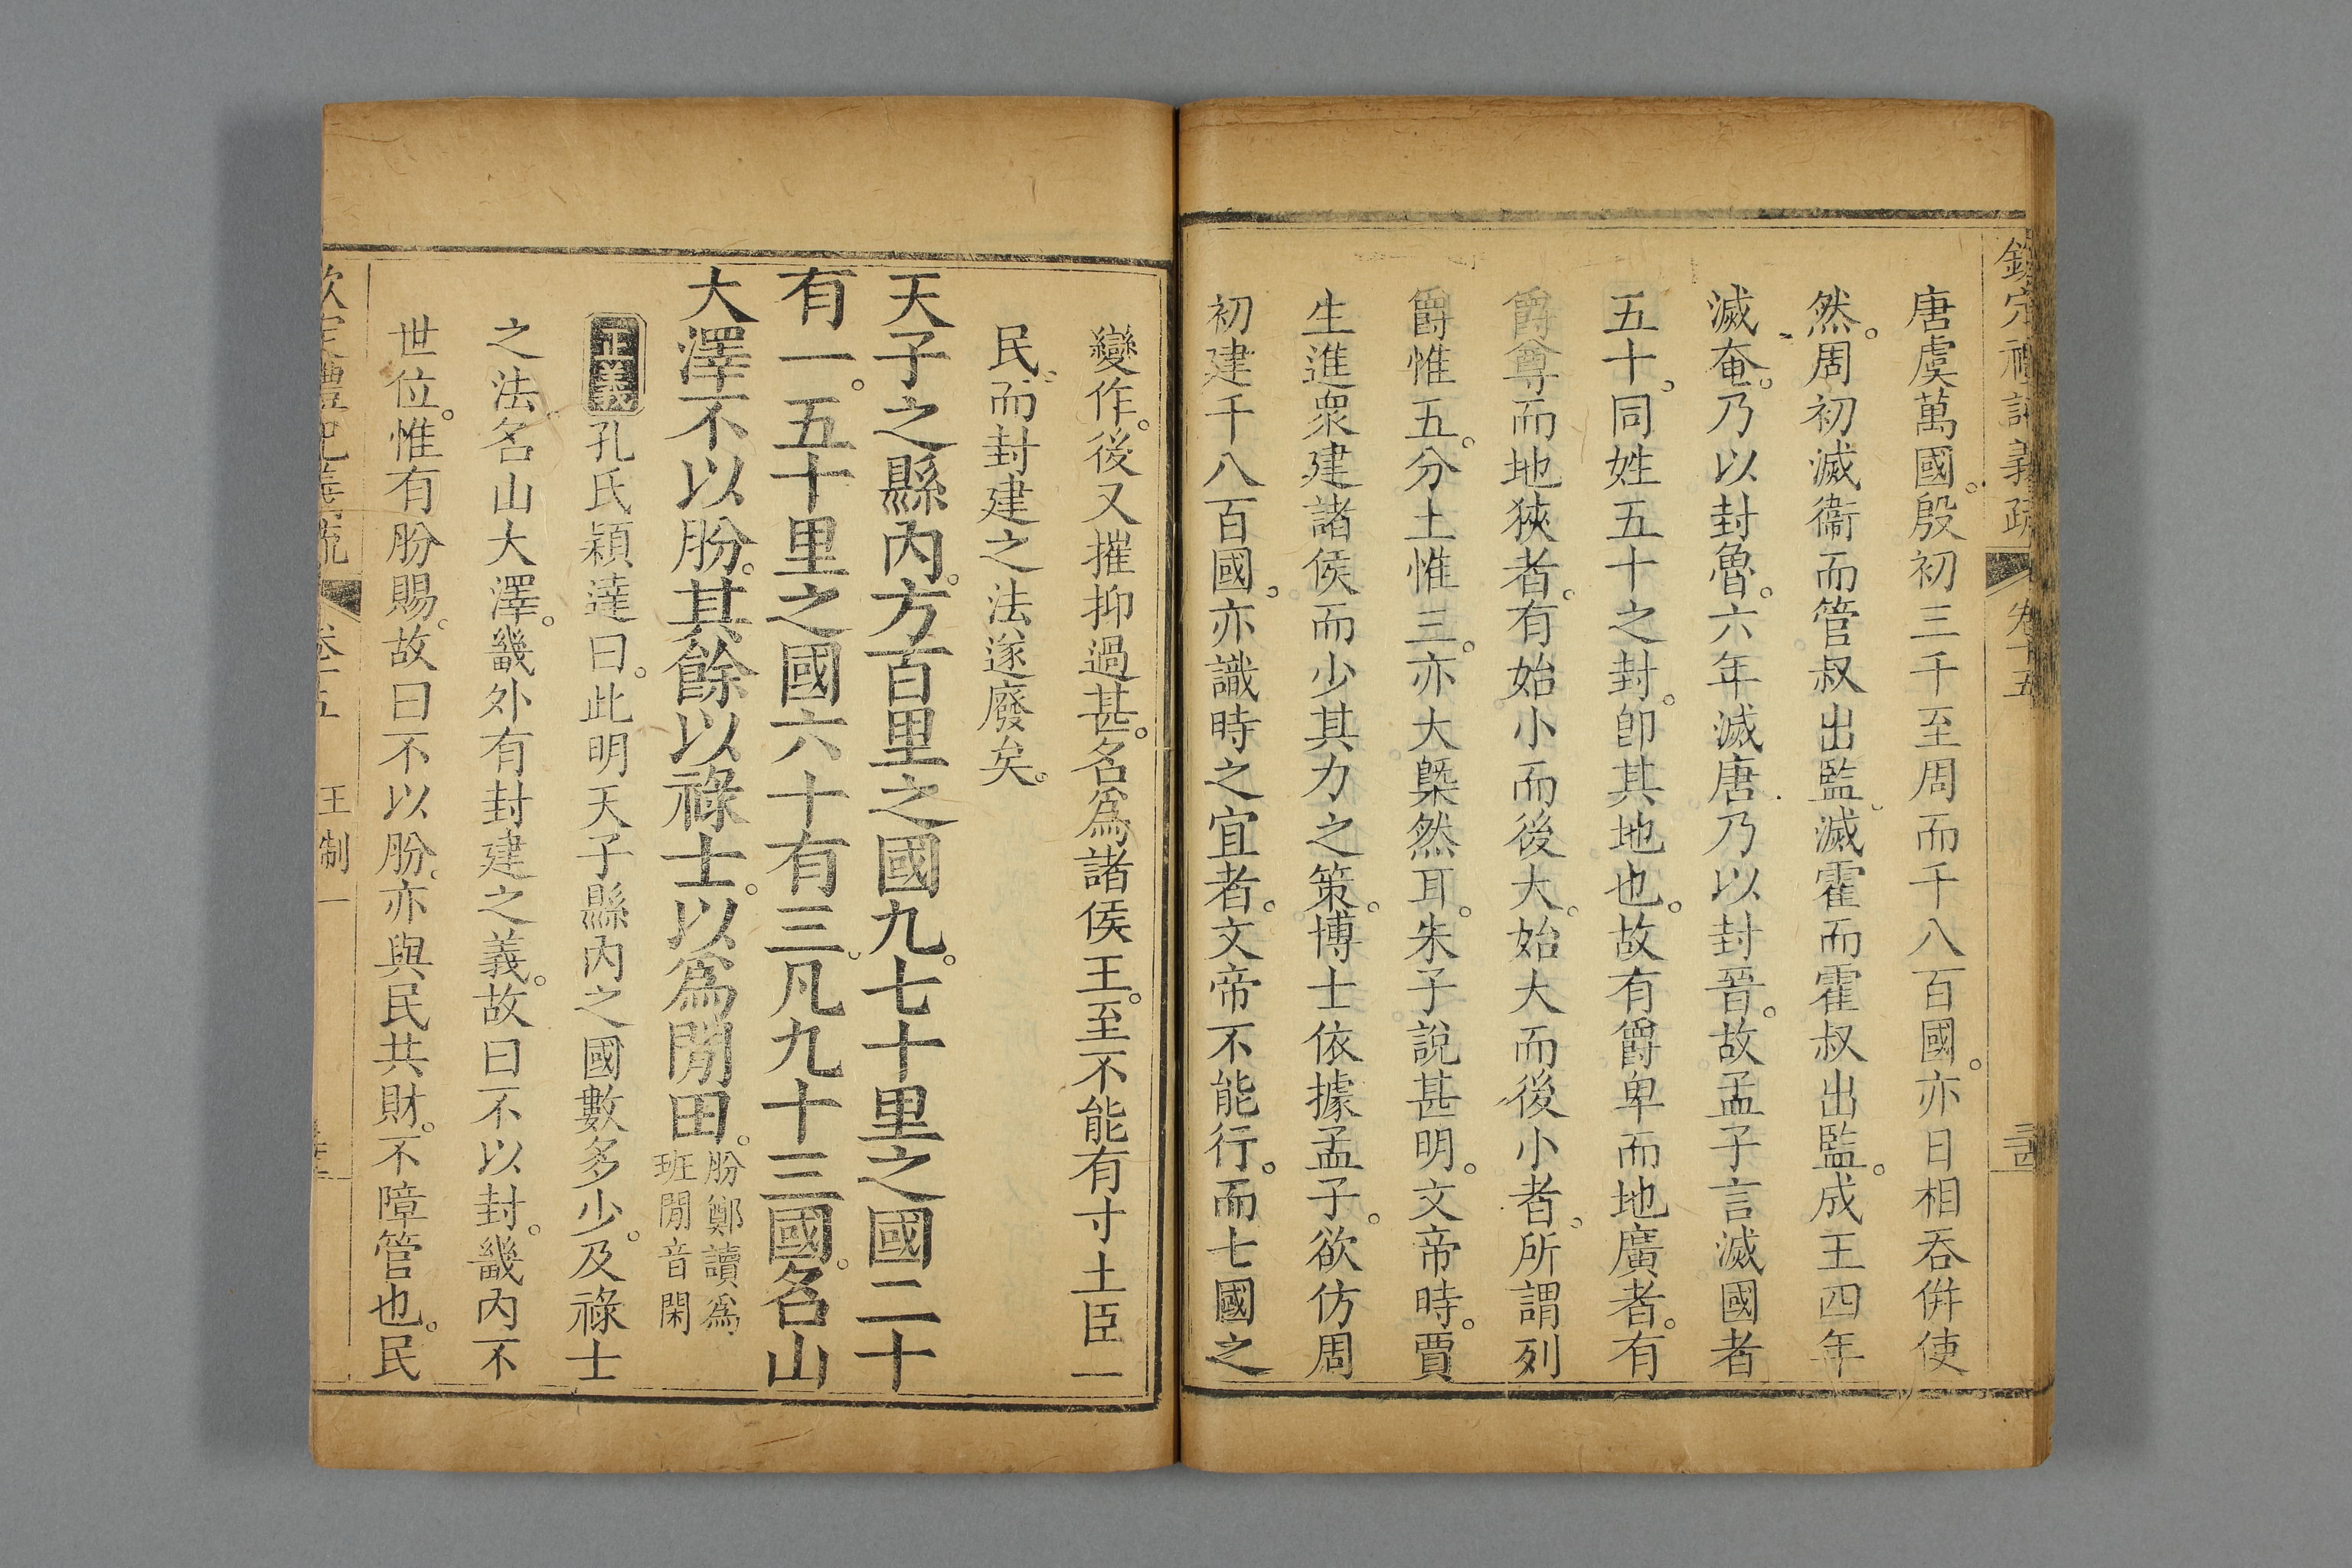 唐虞萬國。殷初三千至周而千八百國。亦日相吞併使
然。周初滅衞而管叔出監。滅霍而霍叔出監。成王四年
滅奄。乃以封魯。六年滅唐乃以封晉。故孟子言滅國者
五十。同姓五十之封。卽其地也。故有爵卑而地廣者。有
爵尊而地狹者。有始小而後大。始大而後小者。所謂列
爵惟五。分土惟三。亦大槩然耳。朱子說甚明。文帝時。賈
生進衆建諸侯而少其力之策。博士依據孟子。欲仿周
初建千八百國。亦識時之宜者。文帝不能行。而七國之
變作。後又摧抑過甚。名爲諸侯王。至不能有寸土臣一
民。而封建之法遂廢矣。
天子之縣內。方百里之國九。七十里之國二十
有一。五十里之國六十有三。凡九十三國。名山
大澤不以朌。其餘以祿士。以爲閒田。朌鄭讀爲
班閒音閑
正義孔氏穎達曰。此明天子縣內之國數多少。及祿士
之法。名山大澤。畿外有封建之義。故曰不以封。畿內不
世位。惟有朌賜。故曰不以朌。亦與民共財。不障管也。民
欽定禮記義疏 卷十五 王制一